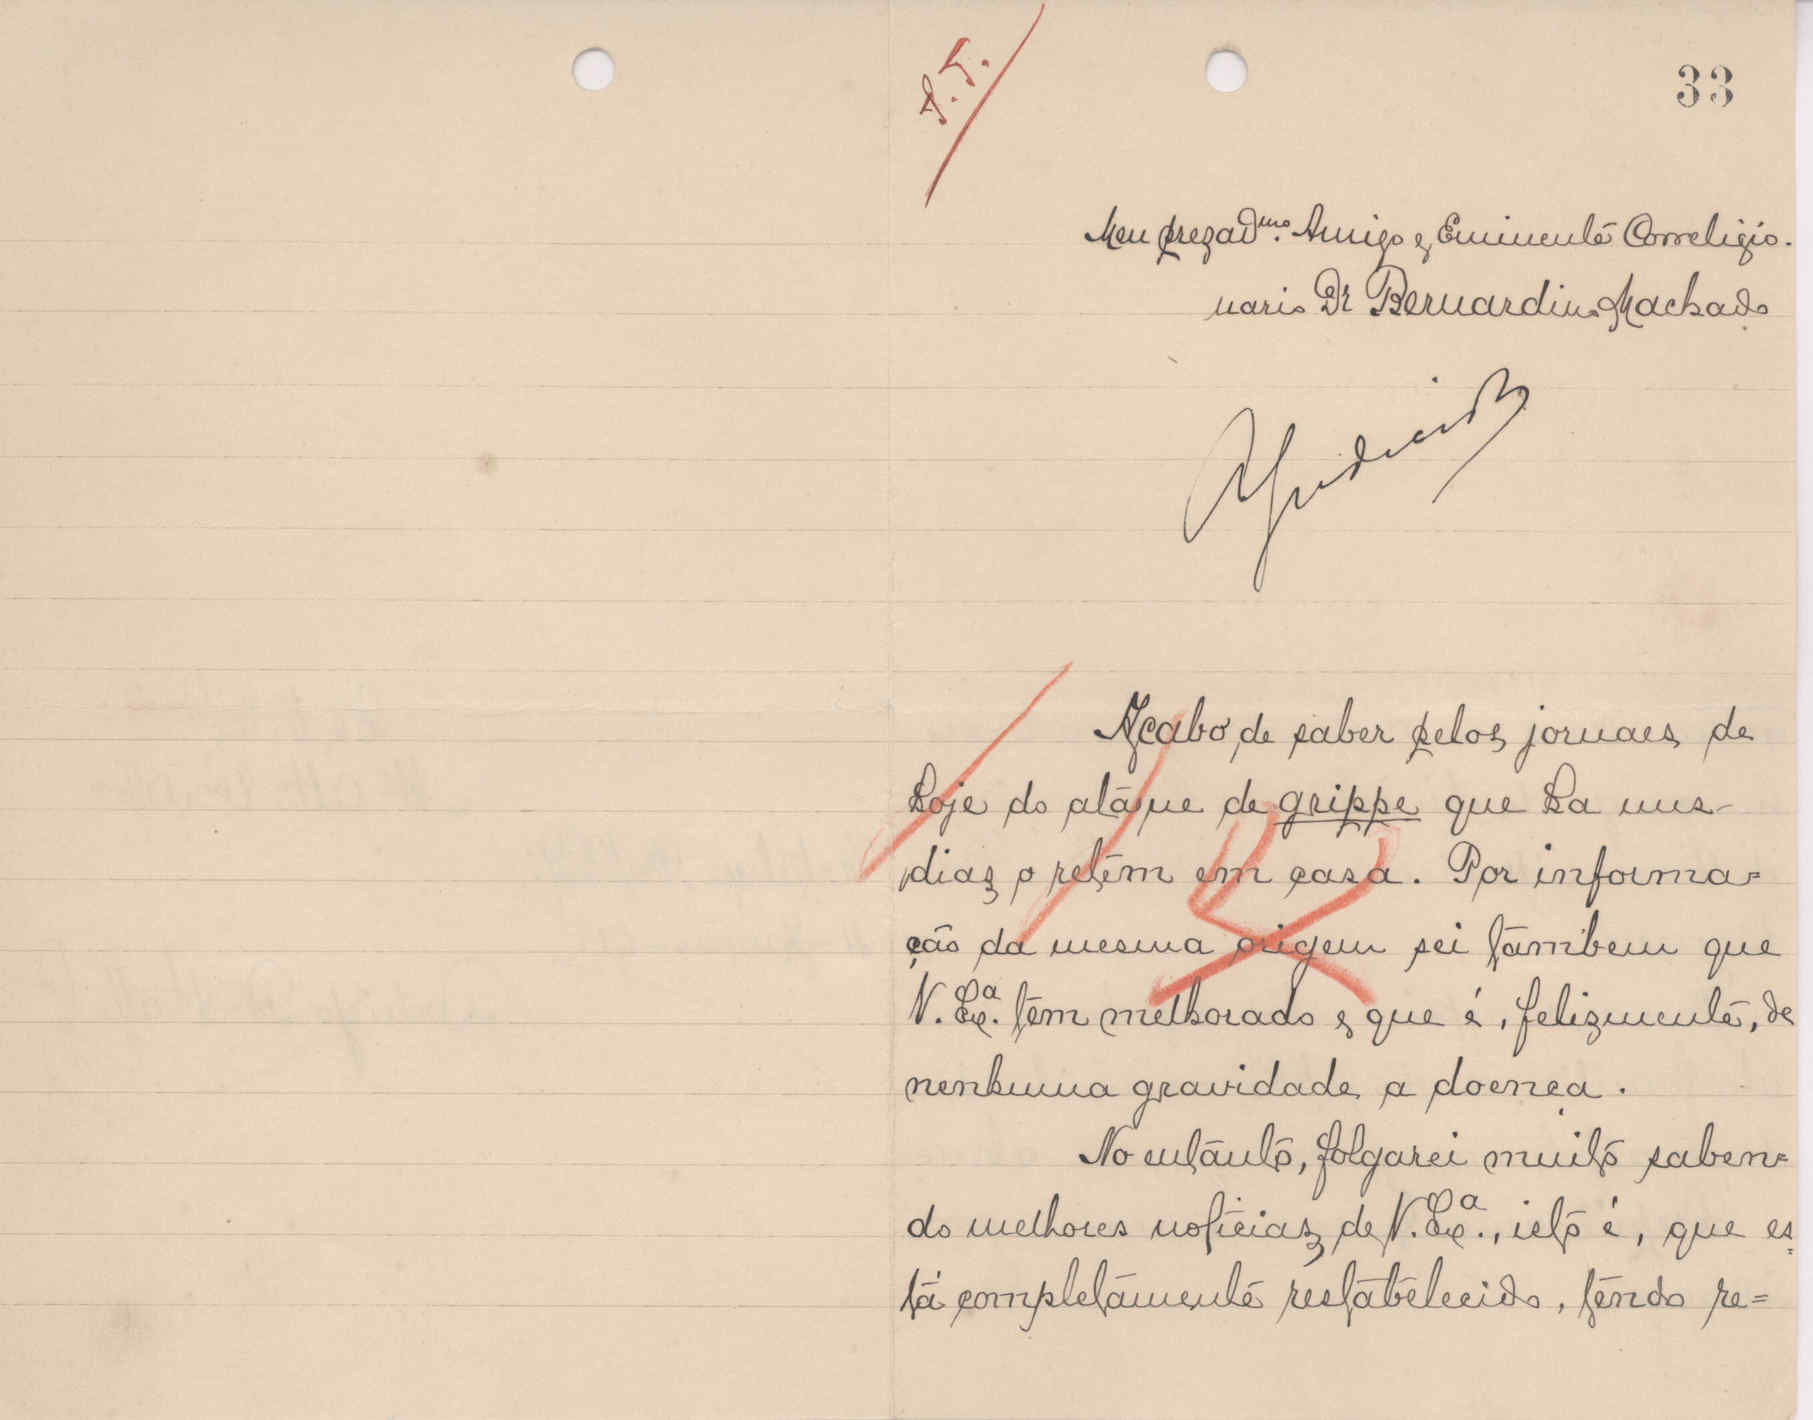 33
Meu prezadmo. Amigo e Eminente Correligio-
nario Dr Bernardino Machado
Acabo de saber pelos jornaes de
hoje do ataque de grippe que ha uns
dias o retem em casa. Por informa=
ção da mesma origem sei tambem que
V. Exa. tem melhorado e que é, felizmente, de
nenhuma gravidade a doença.
No entanto, folgarei muito saben=
do melhores noticias de V. Exa., isto é, que es=
tá completamente restabelecido, tendo re=